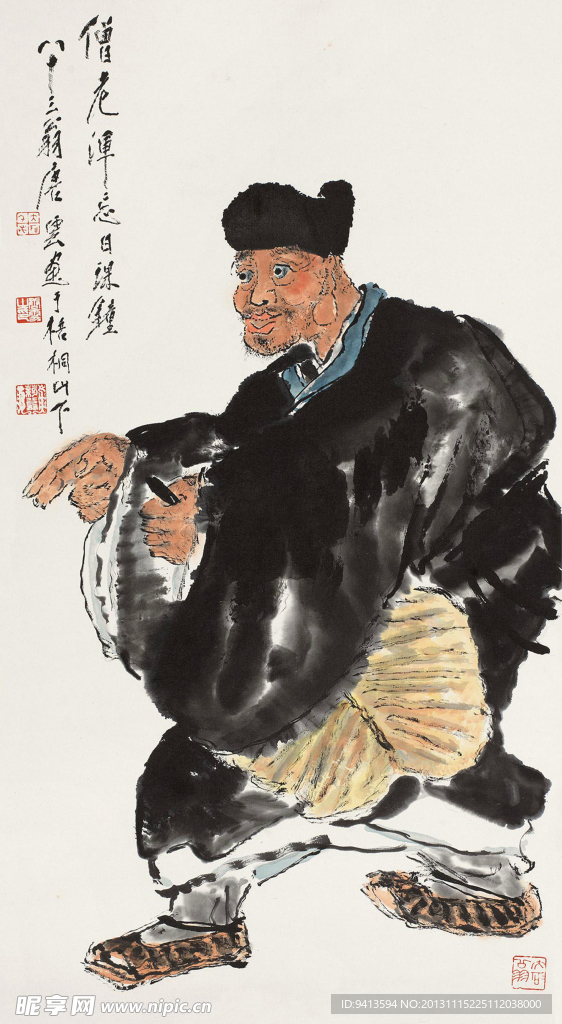 僧老渾忘日課鐘
八十三翁唐雲畫于梧桐山下
昵享网 www.nipic.cn
ID:9413594 NO:20131115225112038000